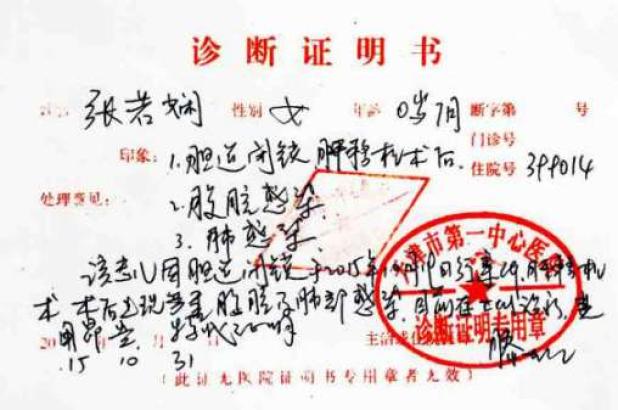 诊断证明书
张若娴 性别 女 年龄 0岁 月 断字第 号
门诊号
印象: 1.胆道闭锁 肝移植术后. 住院号 399014
处理意见: 2.腹腔感染.
3.肺感染.
该患儿因胆道闭锁于2015年 月 日行 肝移植
术.术后出现 腹腔及肺部感染.目前在 治疗.
用昂贵
15 10 31
市第一中心医
诊断证明专用章
(此证无医院证明书专用章者无效)